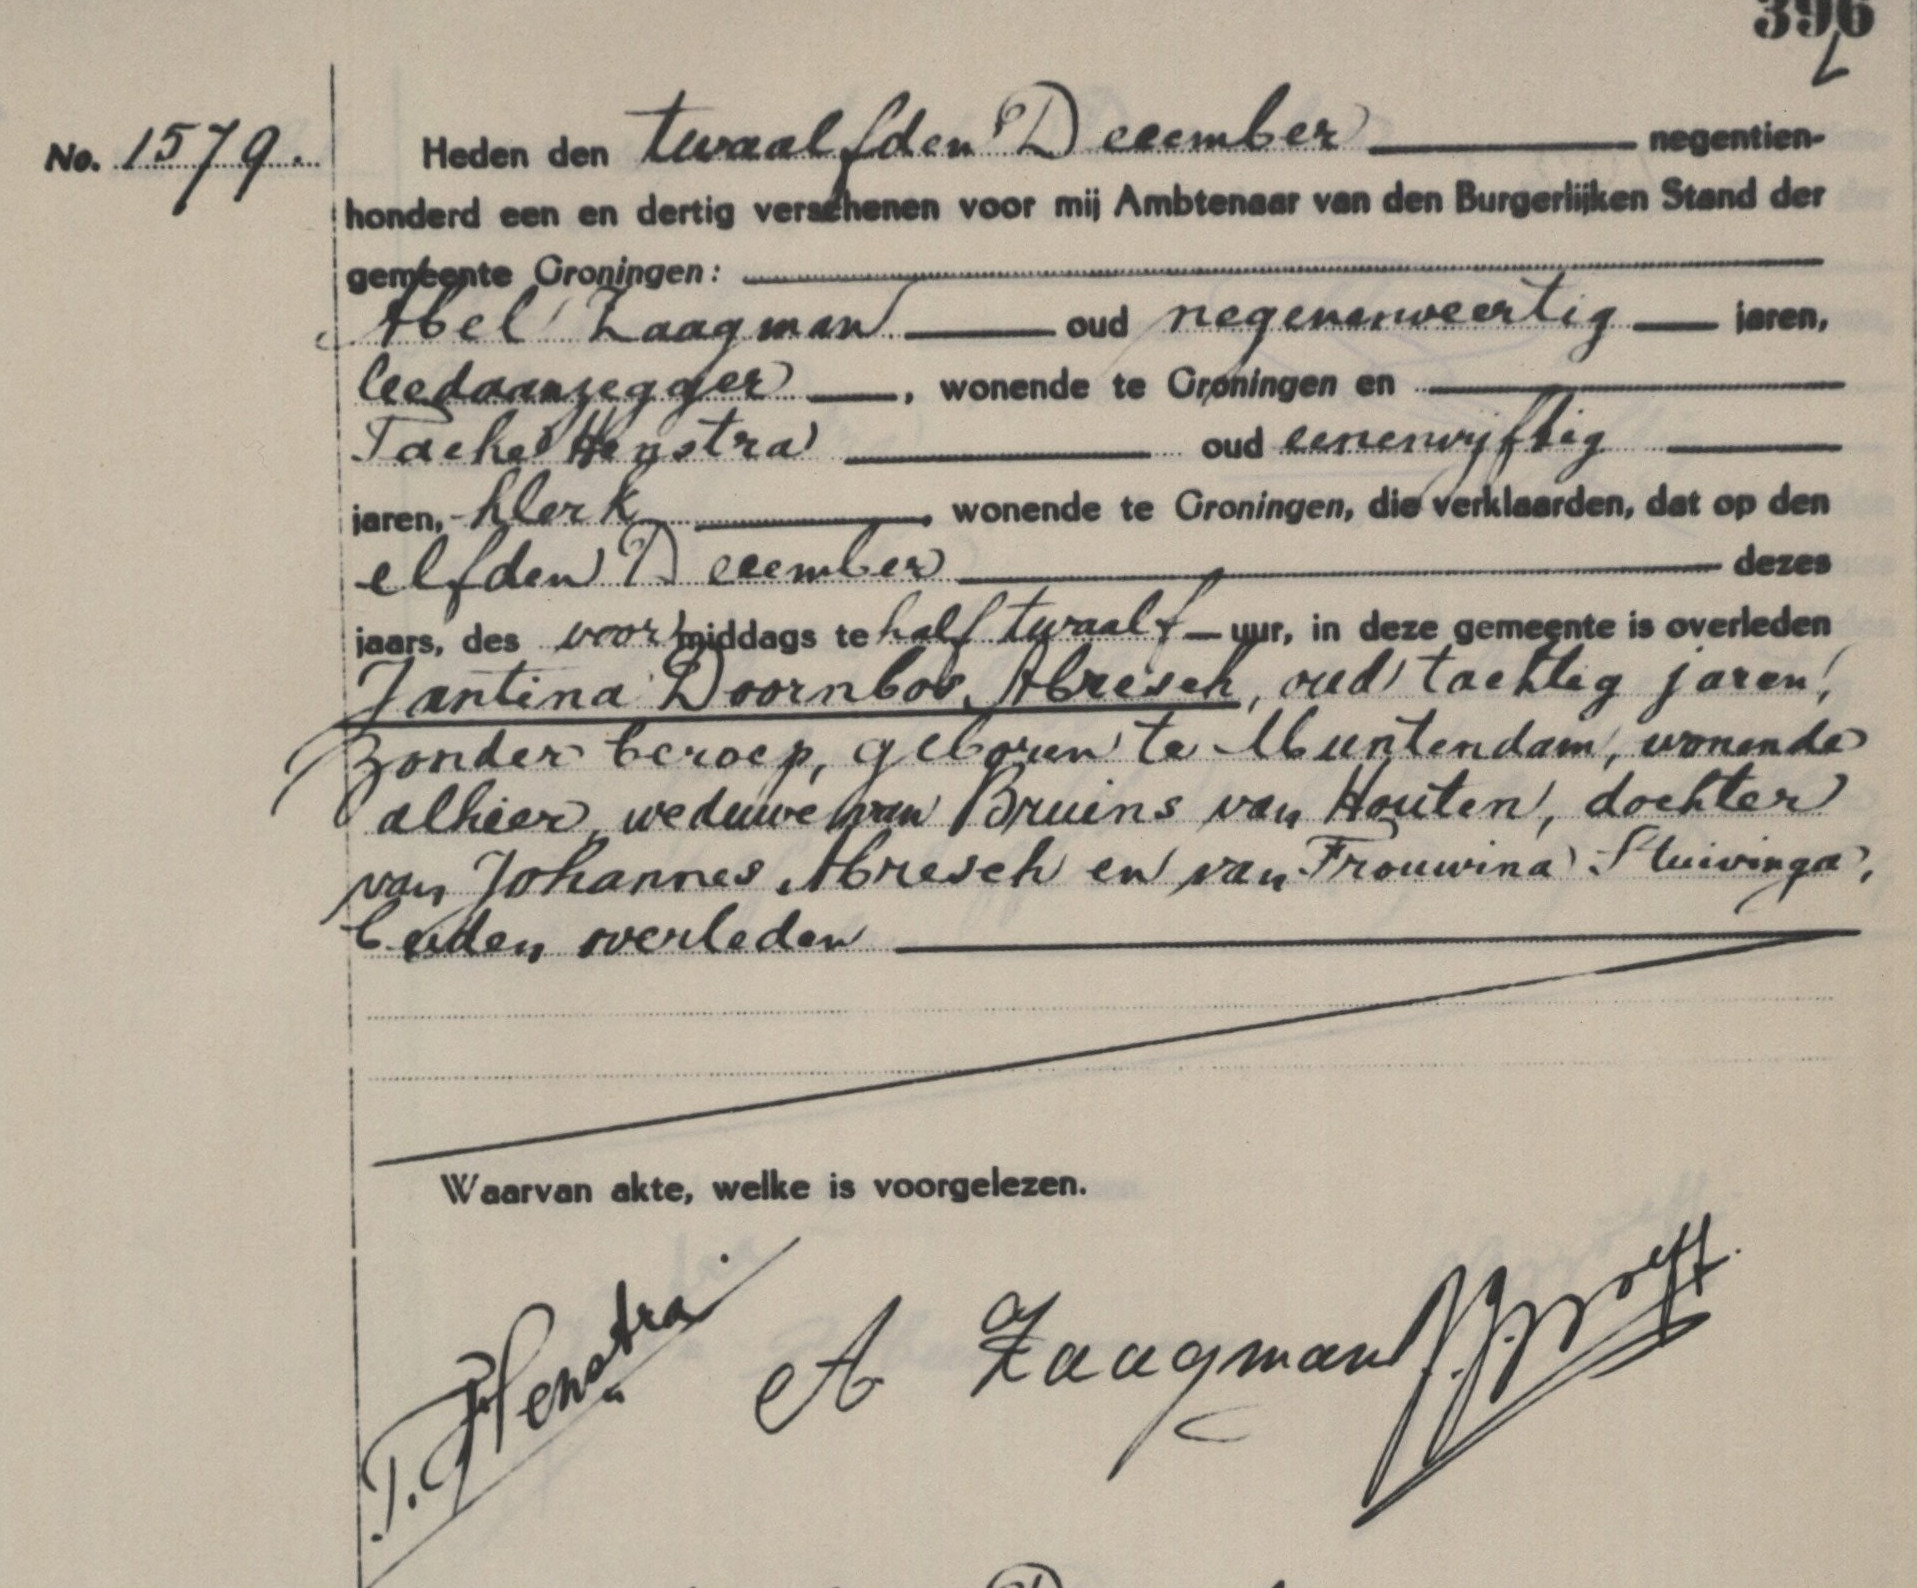 396
No. 1579.
Heden den twaalfden December negentien-
honderd een en dertig verschenen voor mij Ambtenaar van den Burgerlijken Stand der
gemeente Groningen:
Abel Zaagman oud negenenveertig jaren,
leedaanzegger, wonende te Groningen en
Taeke Henstra oud eenenvijftig
jaren, klerk, wonende te Groningen, die verklaarden, dat op den
elfden December dezes
jaars, des voormiddags te half twaalf uur, in deze gemeente is overleden
Jantina Doornbos Abresch, oud tachtig jaren,
zonder beroep, geboren te Muntendam, wonende
alhier, weduwe van Bruins van Houten, dochter
van Johannes Abresch en van Frouwina Stuivinga,
beiden overleden
Waarvan akte, welke is voorgelezen.
T. Henstra A Zaagman